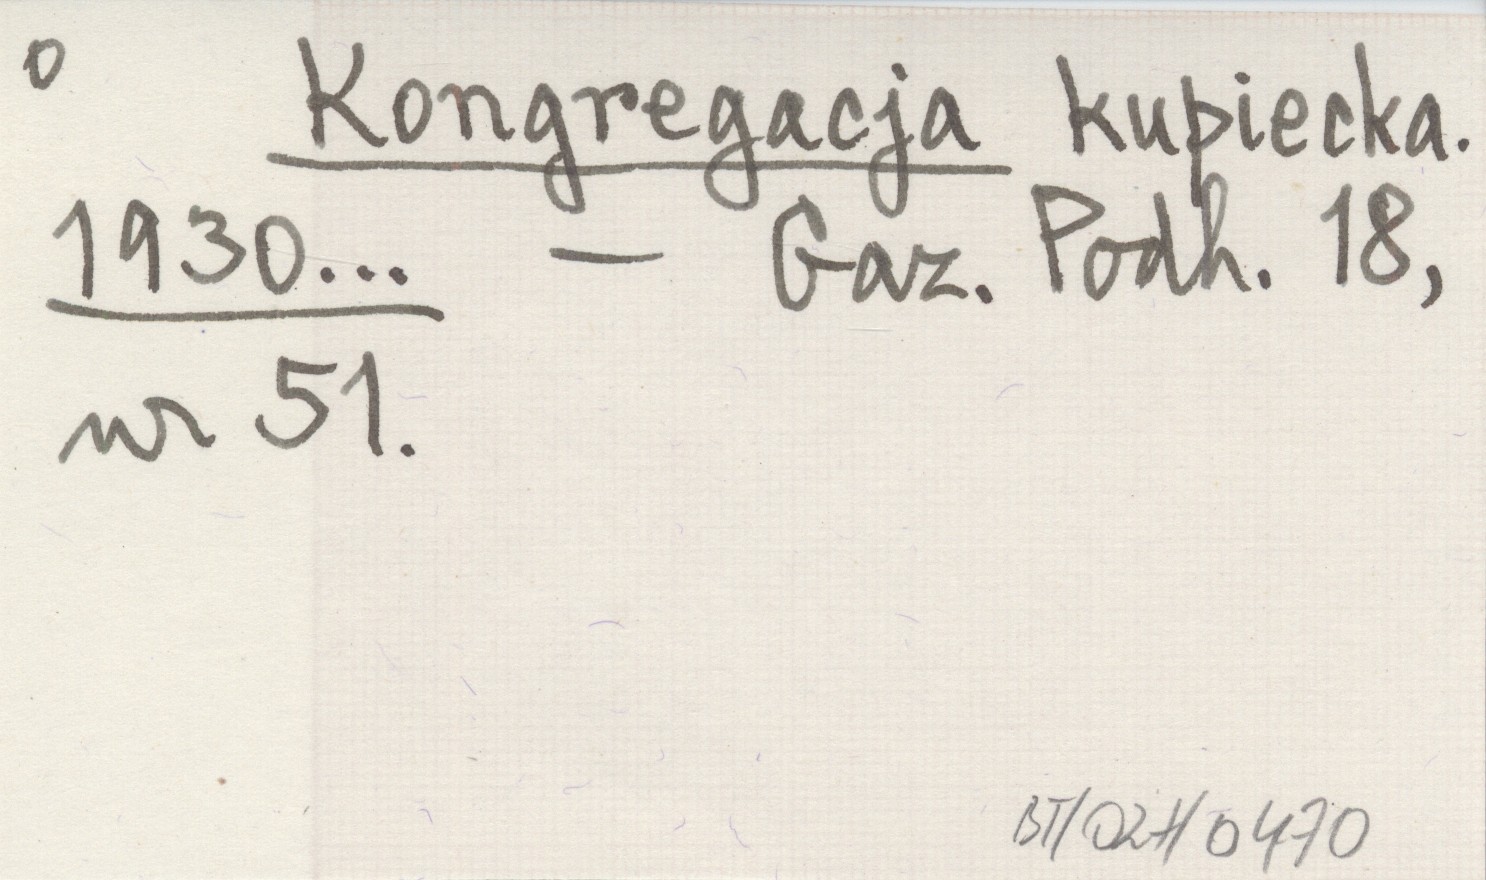 o Kongregacja kupiecka.
1930... — Gaz. Podh. 18,
nr 51.
BT/DZH/0470